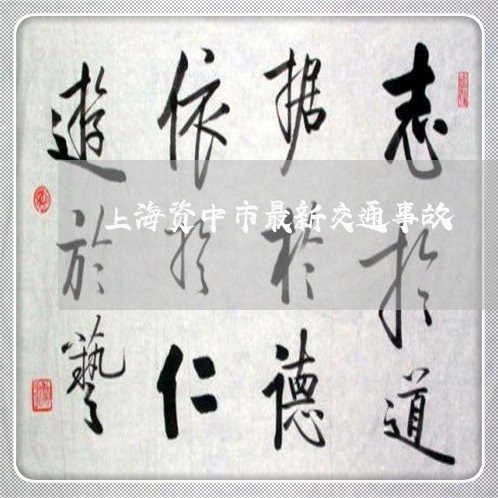 志於道
据於德
依於仁
遊於藝
上海资中市最新交通事故